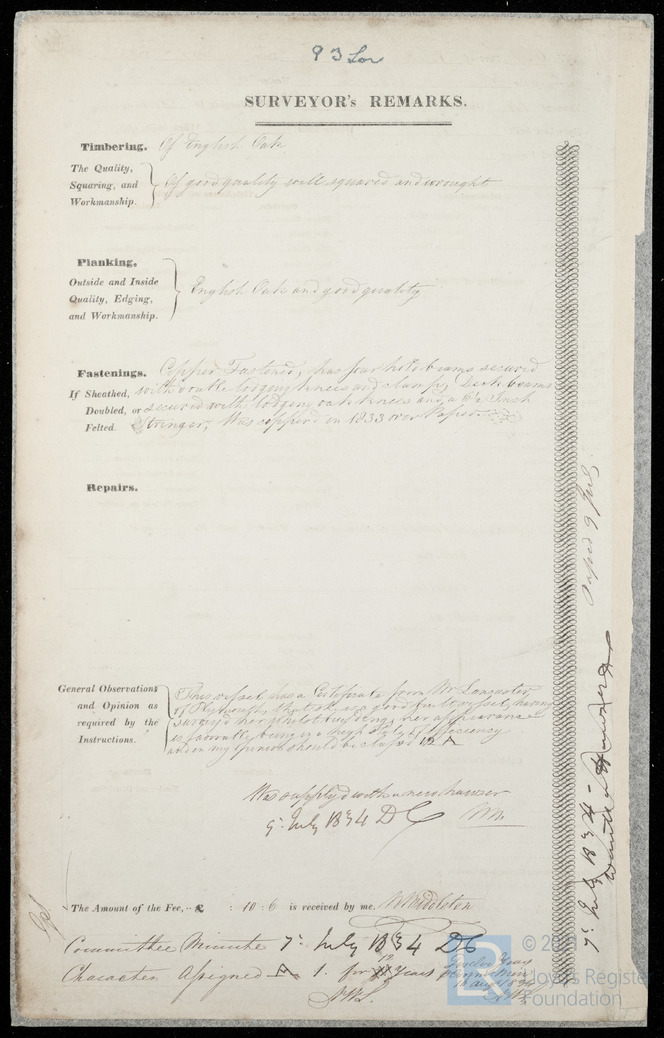 93 Lon
SURVEYOR's REMARKS.
Timbering. Of English Oak
The Quality,
Squaring, and
Workmanship.
Of good quality well squared and wrought
Planking.
Outside and Inside
Quality, Edging,
and Workmanship.
English Oak and good quality
Fastenings. Copper Fastened, has four hold beams secured
If Sheathed, with double lodging knees and clamp, Deck beams
Doubled, or secured with lodging oak knees and a Inch
Felted. Stringer, Was copper'd in 1833 over Paper
Repairs.
General Observations
and Opinion as
required by the
Instructions.
This vessel has a Certificate from Mr Lancaster
of Plymouth, that she is a good built vessel, having
survey'd her whilst building, her appearance
is favorable being in a high state of efficiency
and in my Opinion should be classed 12 A
Was supply'd with a new hawser
9th July 1834 DC
WM.
The Amount of the Fee, £ : 10 : 6 is received by me. W Middleton
Committee Minute 7th July 1834 DC
Character Assigned A 1. for 12 years
Twelve Years
10 Aug 1834
7th July 1834 -
Wants a Hawser
© 2021
Lloyd's Register
Foundation